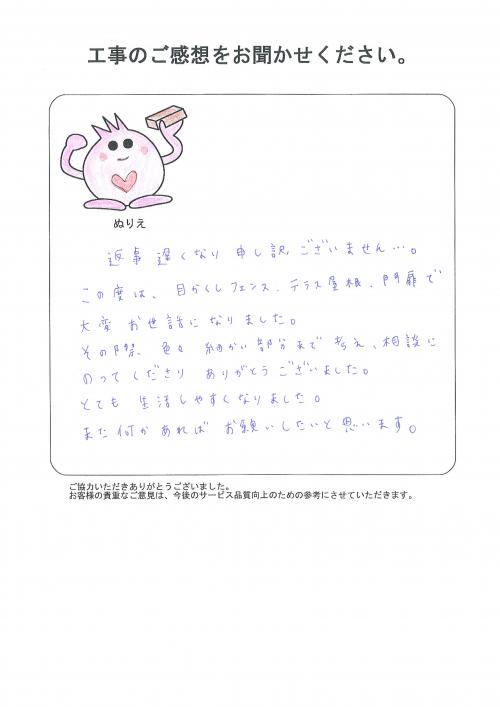 工事のご感想をお聞かせください。
ぬりえ
返事遅くなり申し訳ございません…。
この度は、目かくしフェンス、テラス屋根、門扉で
大変お世話になりました。
その際、色々細かい部分まで考え、相談に
のってくださりありがとうございました。
とても生活しやすくなりました。
また何かあればお願いしたいと思います。
ご協力いただきありがとうございました。
お客様の貴重なご意見は、今後のサービス品質向上のための参考にさせていただきます。